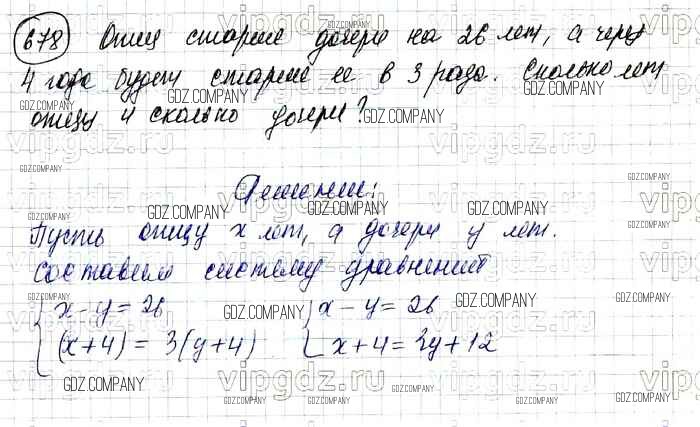 678 Отец старше дочери на 26 лет, а через
4 года будет старше ее в 3 раза. Сколько лет
отцу и сколько дочери?
Решение:
Пусть отцу x лет, а дочери y лет.
составим систему уравнений
x - y = 26
(x+4) = 3(y+4)
x - y = 26
x+4 = 3y+12
GDZ.COMPANY
vipgdz.ru